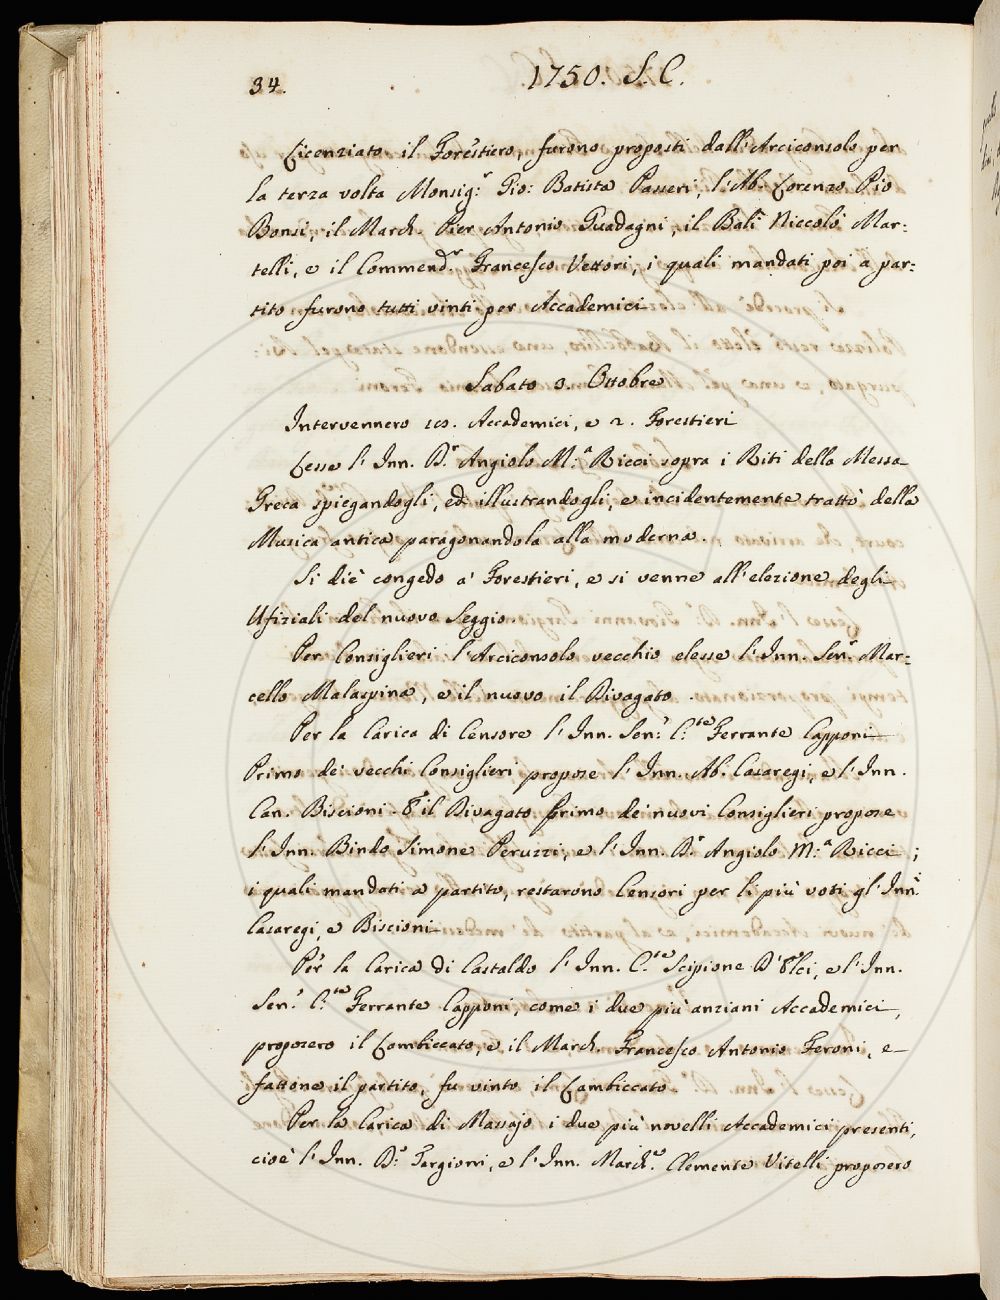 34.
1750. S. C.
Licenziato il Forestiero, furono proposti dall'Arciconsolo per
la terza volta Monsig.r Gio: Batista Passeri, l'Ab. Lorenzo Pio
Bonsi, il March. Pier Antonio Guadagni, il Balì Niccolò Mar:
telli, e il Commend.r Francesco Vettori, i quali mandati poi a par:
tito furono tutti vinti per Accademici
Sabato 3. Ottobre
Intervennero 10. Accademici, e 2. Forestieri
Lesse l'Inn. D.r Angiolo M.a Ricci sopra i Riti della Messa
Greca spiegandogli, ed illustrandogli, e incidentemente trattò della
Musica antica paragonandola alla moderna.
Si diè congedo a' Forestieri, e si venne all'elezione degli
Ufiziali del nuovo Seggio.
Per Consiglieri l'Arciconsolo vecchio elesse l'Inn. Sen.r Mar:
cello Malaspina, e il nuovo il Divagato.
Per la Carica di Censore l'Inn. Sen.r C.te Ferrante Capponi
Primo de' vecchi Consiglieri propose l'Inn. Ab. Casaregi, e l'Inn.
Can. Biscioni. E il Divagato Primo de' nuovi Consiglieri propose
l'Inn. Bindo Simone Peruzzi, e l'Inn. D.r Angiolo M.a Ricci;
i quali mandati a partito, restarono Censori per li più voti gl'Inn.i
Casaregi, e Biscioni
Per la Carica di Castaldo l'Inn. C.te Scipione D'Elci, e l'Inn.
Sen.r C.te Ferrante Capponi, come i due più anziani Accademici,
proposero il Lambiccato, e il March. Francesco Antonio Feroni, e
fattone il partito, fu vinto il Lambiccato
Per la Carica di Massajo i due più novelli Accademici presenti,
cioè l'Inn. D.r Targioni, e l'Inn. March.e Clemente Vitelli proposero